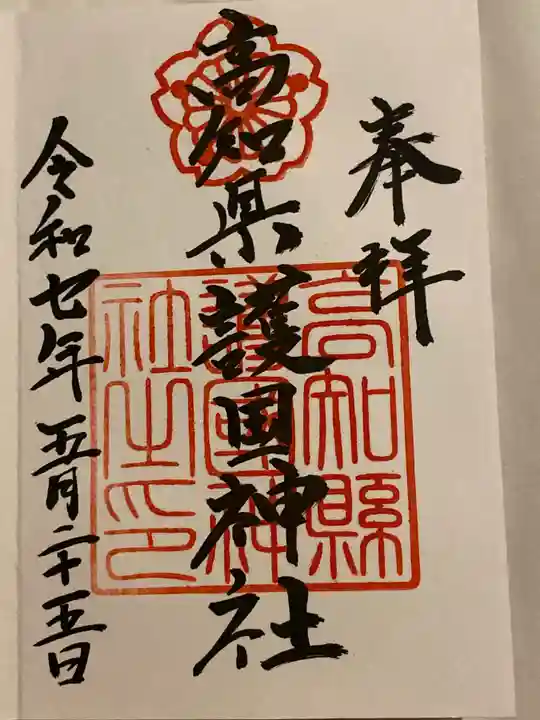 奉拝
高知県護国神社
高知縣
護國神
社之印
令和七年五月二十五日